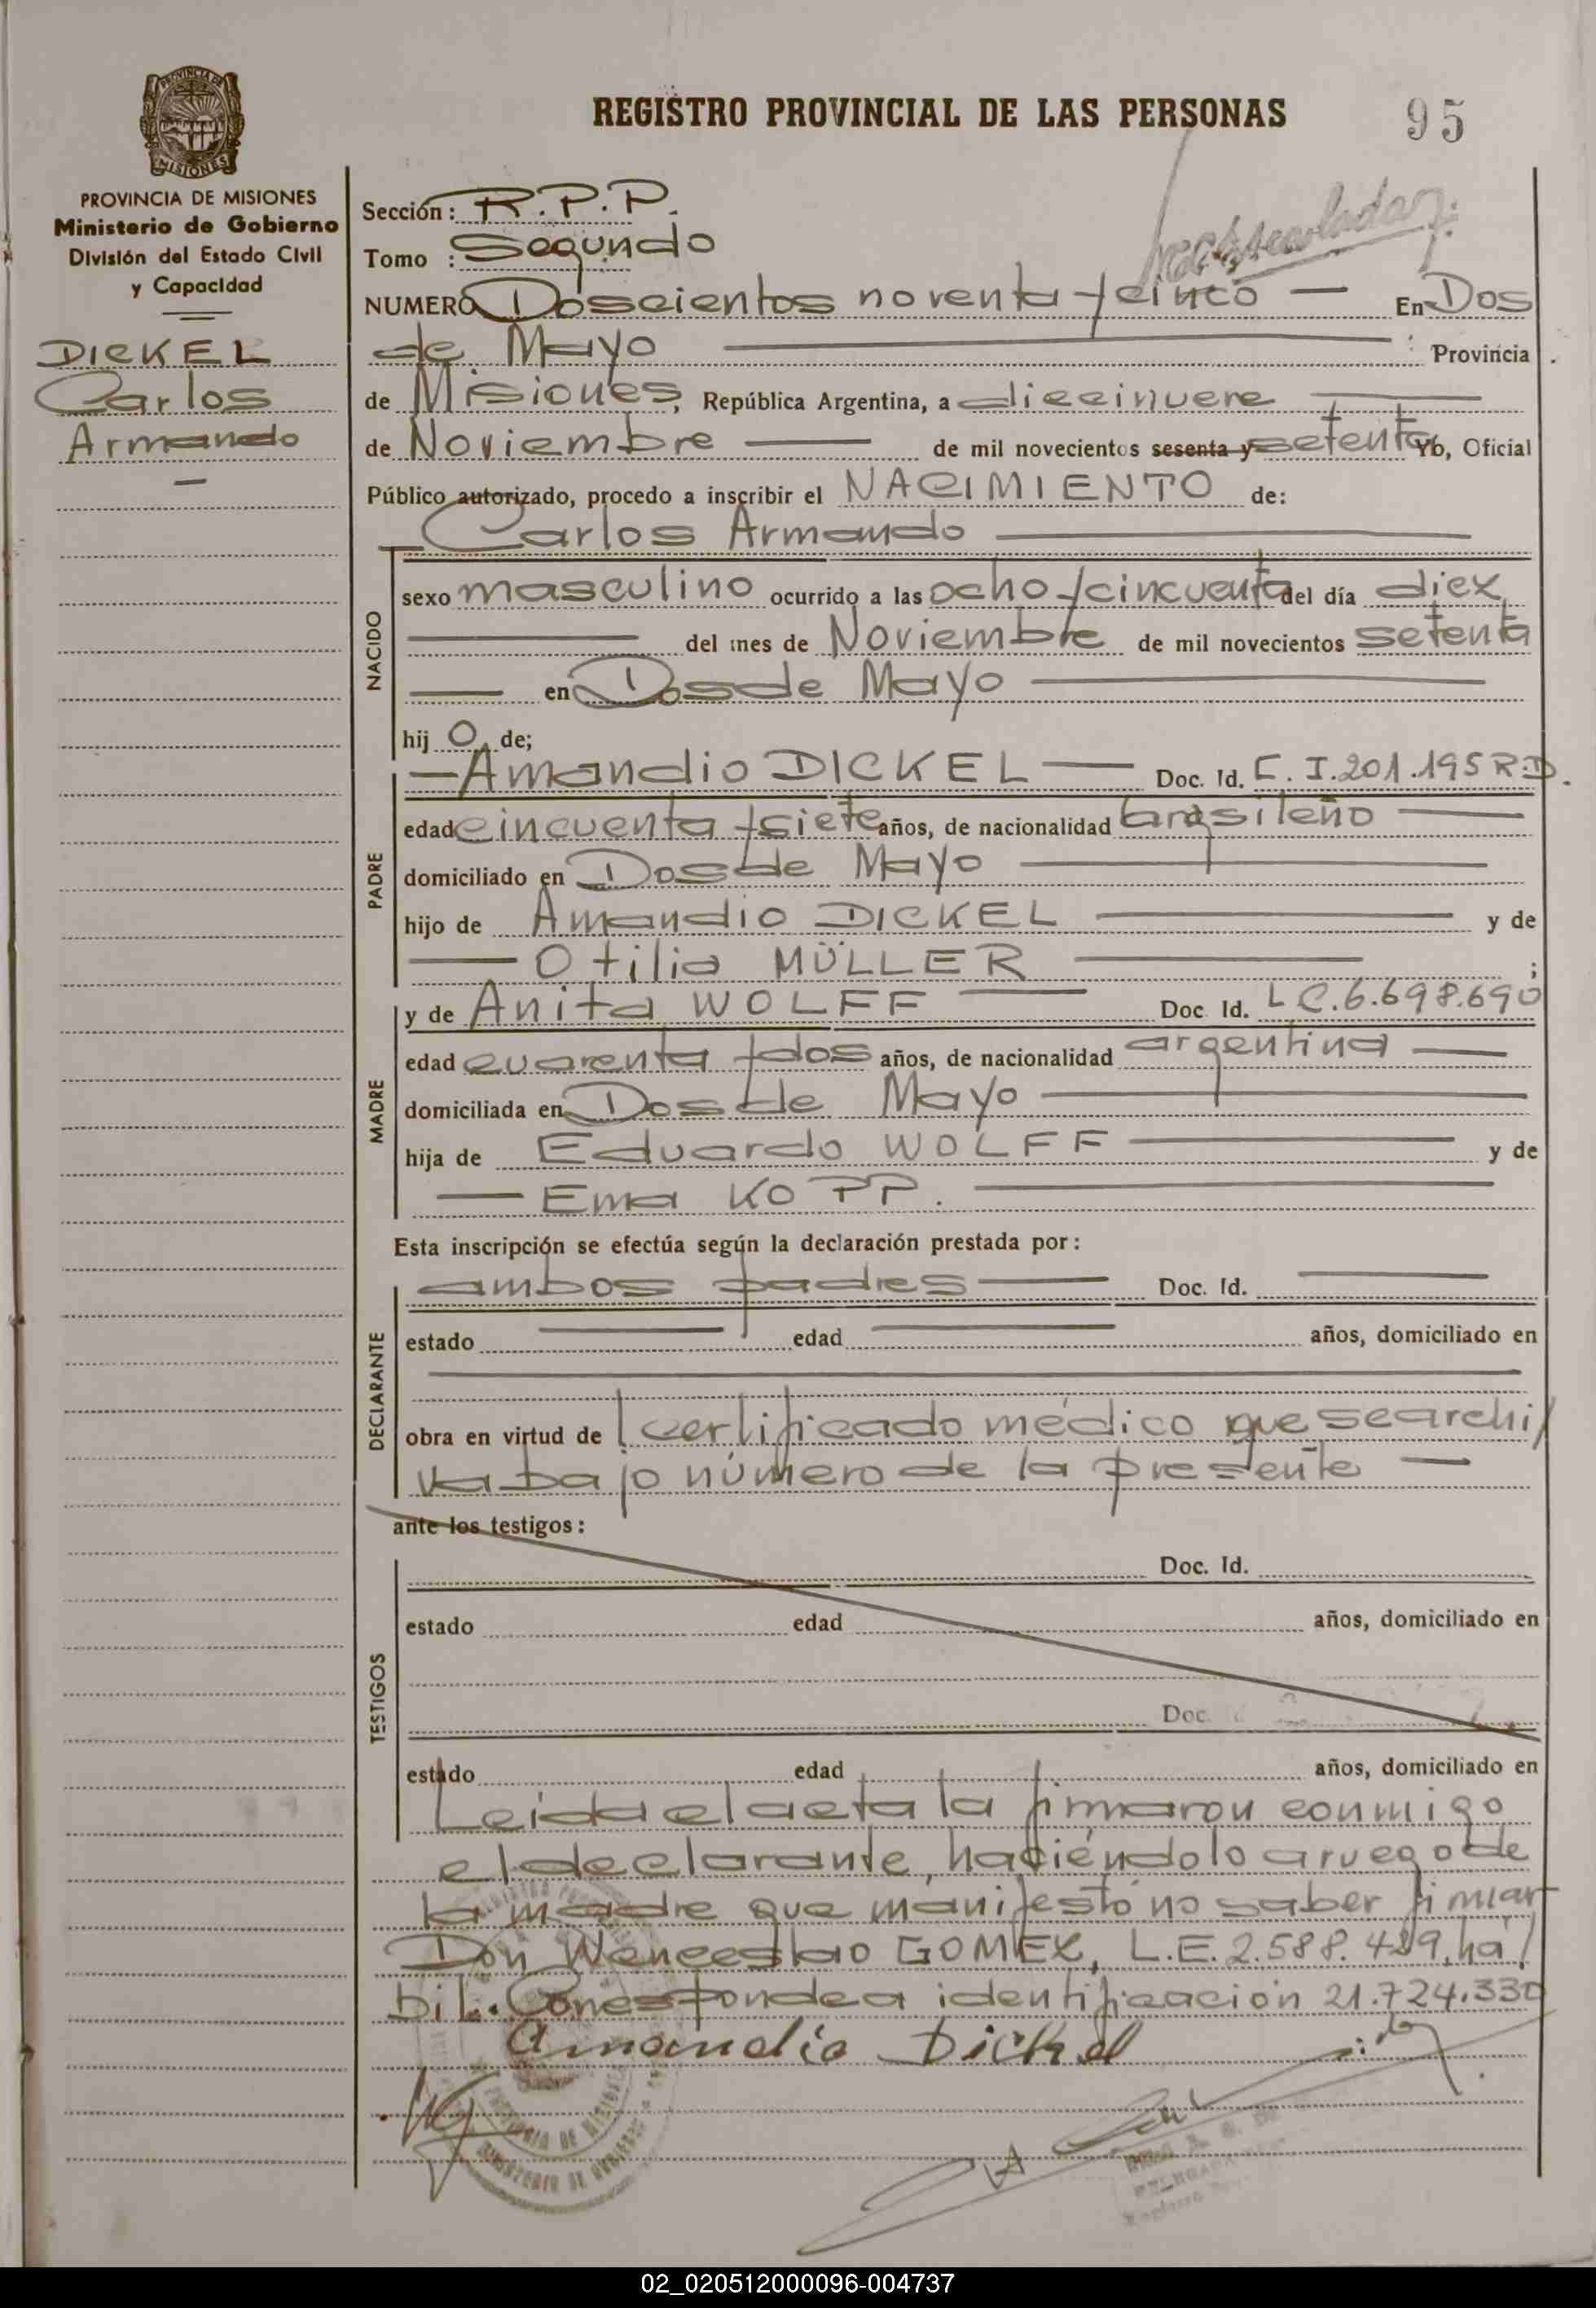 REGISTRO PROVINCIAL DE LAS PERSONAS
95
PROVINCIA DE MISIONES
Ministerio de Gobierno
División del Estado Civil
y Capacidad
DICKEL
Carlos
Armando
Sección: R.P.P.
Tomo : Segundo
NUMERO Doscientos noventa y cinco En Dos
de Mayo Provincia
de Misiones, República Argentina, a diecinueve
de Noviembre de mil novecientos sesenta y setenta Yo, Oficial
Público autorizado, procedo a inscribir el NACIMIENTO de:
Carlos Armando
NACIDO
sexo masculino ocurrido a las ocho y cincuenta del día diez
del mes de Noviembre de mil novecientos setenta
en Dos de Mayo
hij o de;
PADRE
Amandio DICKEL Doc. Id. C.I.201.195 R.D.
edad cincuenta y siete años, de nacionalidad brasileño
domiciliado en Dos de Mayo
hijo de Amandio DICKEL y de
Otilia MÜLLER ;
MADRE
y de Anita WOLFF Doc Id. LC.6.698.690
edad cuarenta y dos años, de nacionalidad argentina
domiciliada en Dos de Mayo
hija de Eduardo WOLFF y de
Ema KOPP.
Esta inscripción se efectúa según la declaración prestada por:
DECLARANTE
ambos padres Doc. Id.
estado edad años, domiciliado en
obra en virtud de certificado médico que se archi/
va bajo número de la presente
ante los testigos:
TESTIGOS
Doc. Id.
estado edad años, domiciliado en
Doc.
estado edad años, domiciliado en
Leida el acta la firmaron conmigo
el declarante, haciéndolo a ruego de
la madre que manifestó no saber firmar
Don Wenceslao GOMEZ, L.E.2.588.489, há/
bil. Corresponde a identificación 21.724.330
Amandio Dickel
02_020512000096-004737